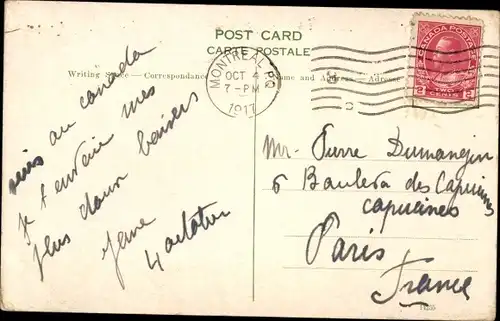 POST CARD
CARTE POSTALE
Writing Space — Correspondance
Name and Address — Adresse
MONTREAL, P.Q.
OCT 4
7 - PM
1911
CANADA POSTAGE
2 TWO CENTS 2
au canada
je t'envoie mes
plus doux baisers
4 octobre
Mr. Pierre Dumangin
6 des Capucines
capucines
Paris
France